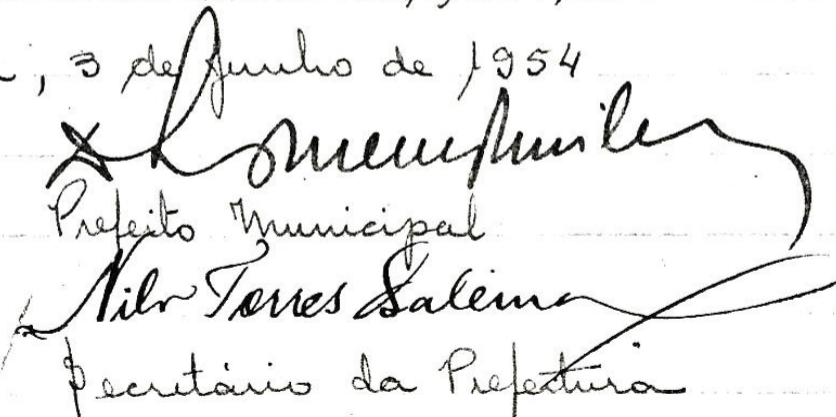 , 3 de Junho de 1954
Prefeito Municipal
Nilo Torres Salema
Secretário da Prefeitura